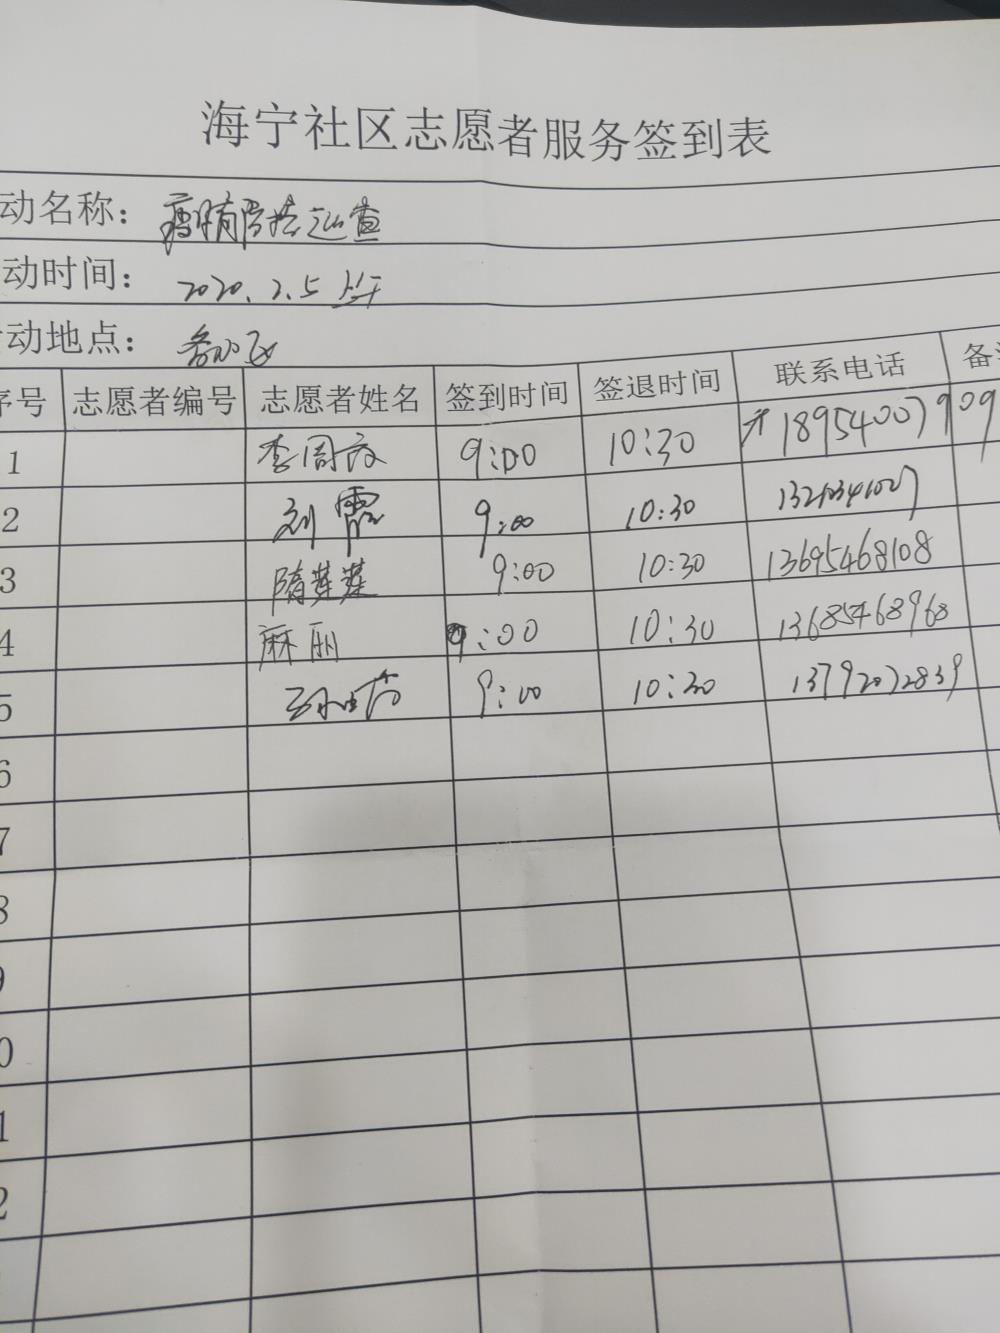 海宁社区志愿者服务签到表
动名称：
动时间： 2020.2.5 上午
动地点：
序号 志愿者编号 志愿者姓名 签到时间 签退时间 联系电话 备
1 李周 9:00 10:30 18954007909
2 刘霞 9:00 10:30
3 隋莲莲 9:00 10:30 13695468108
4 麻丽 9:00 10:30 13685468968
5 9:00 10:30 13792072839
6
7
8
9
0
1
2